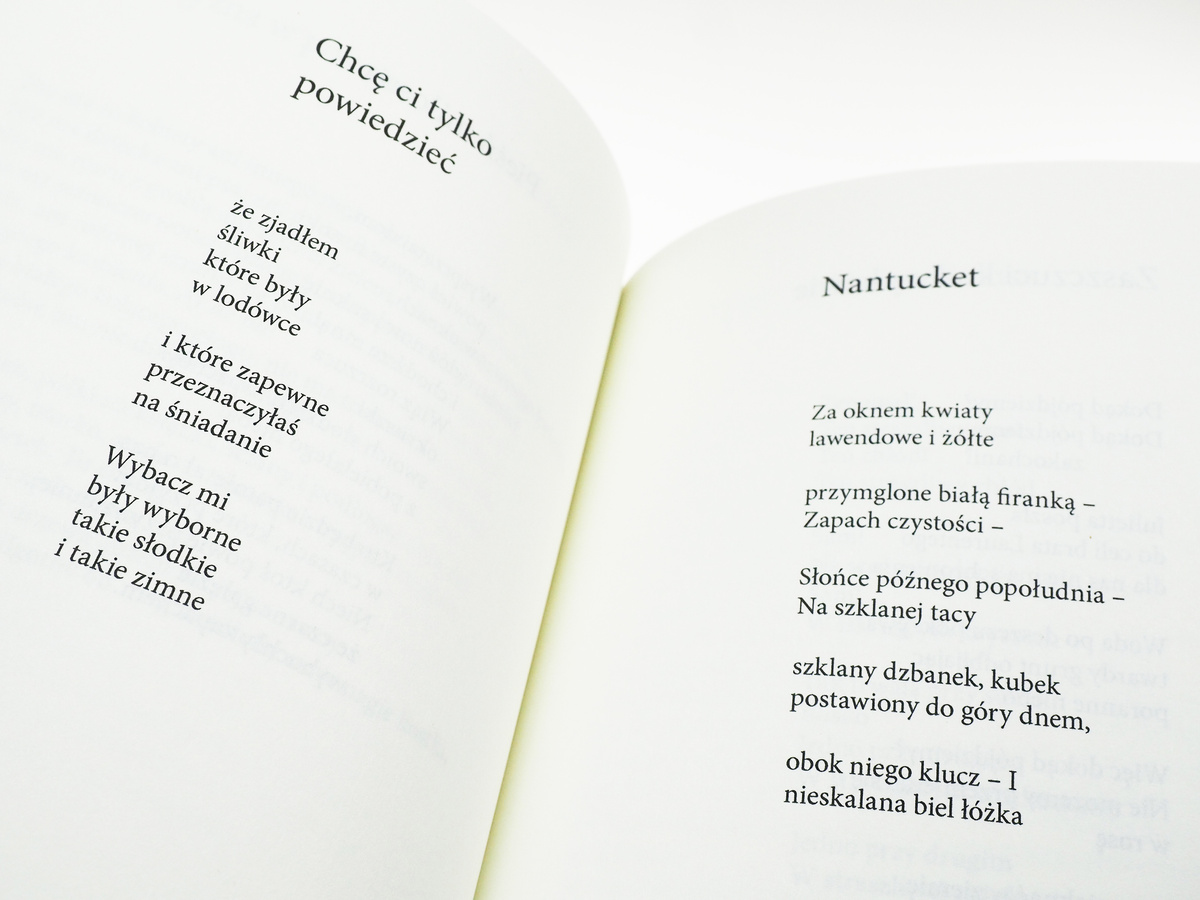 Chcę ci tylko
powiedzieć
że zjadłem
śliwki
które były
w lodówce
i które zapewne
przeznaczyłaś
na śniadanie
Wybacz mi
były wyborne
takie słodkie
i takie zimne
Nantucket
Za oknem kwiaty
lawendowe i żółte
przymglone białą firanką –
Zapach czystości –
Słońce późnego popołudnia –
Na szklanej tacy
szklany dzbanek, kubek
postawiony do góry dnem,
obok niego klucz – I
nieskalana biel łóżka